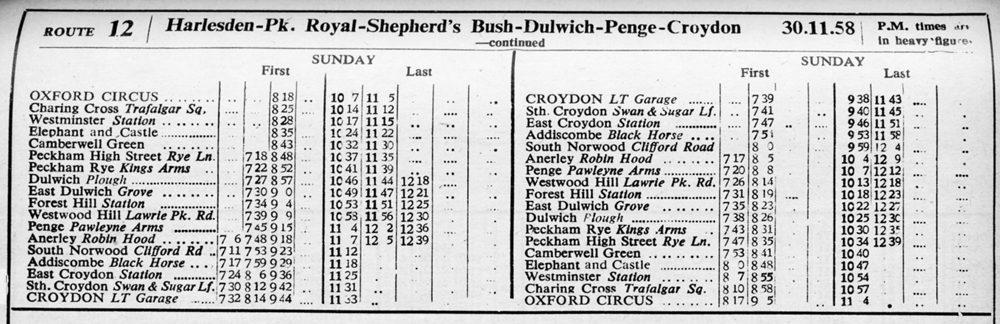 ROUTE 12 Harlesden-Pk. Royal-Shepherd's Bush-Dulwich-Penge-Croydon 30.11.58 P.M. times
—continued in heavy figure
SUNDAY
First Last
OXFORD CIRCUS ....... .. .. 8 18 .. 10 7 11 5 .. .. ..
Charing Cross Trafalgar Sq. .. .. 8 25 .. 10 14 11 12 .. .. ..
Westminster Station .. .. .. .. 8 28 .. 10 17 11 15 .. .. ..
Elephant and Castle ............ .. .. 8 35 .. 10 24 11 22 .. .. ..
Camberwell Green ............ .. .. 8 43 .. 10 32 11 30 .. .. ..
Peckham High Street Rye Ln. .. 7 18 8 48 .. 10 37 11 35 .. .. ..
Peckham Rye Kings Arms .. .. 7 22 8 52 .. 10 41 11 39 .. .. ..
Dulwich Plough ............ .. 7 27 8 57 .. 10 46 11 44 12 18 .. ..
East Dulwich Grove .... .. 7 30 9 0 .. 10 49 11 47 12 21 .. ..
Forest Hill Station ............ .. 7 34 9 4 .. 10 53 11 51 12 25 .. ..
Westwood Hill Lawrie Pk. Rd. .. 7 39 9 9 .. 10 58 11 56 12 30 .. ..
Penge Pawleyne Arms ........ .. 7 45 9 15 .. 11 4 12 2 12 36 .. ..
Anerley Robin Hood ........ 7 6 7 48 9 18 .. 11 7 12 5 12 39 .. ..
South Norwood Clifford Rd .. 7 11 7 53 9 23 .. 11 12 .. .. .. ..
Addiscombe Black Horse ... 7 17 7 59 9 29 .. 11 18 .. .. .. ..
East Croydon Station ........ 7 24 8 6 9 36 .. 11 25 .. .. .. ..
Sth. Croydon Swan & Sugar Lf. 7 30 8 12 9 42 .. 11 31 .. .. .. ..
CROYDON LT Garage ...... 7 32 8 14 9 44 .. 11 33 .. .. .. ..
SUNDAY
First Last
CROYDON LT Garage ...... .. 7 39 .. .. 9 38 11 43 .... .. ....
Sth. Croydon Swan & Sugar Lf. .. 7 41 .. .. 9 40 11 45 .... .. ....
East Croydon Station ........ .. 7 47 .. .. 9 46 11 51 .... .. ....
Addiscombe Black Horse .... .. 7 53 .. .. 9 53 11 58 .... .. ....
South Norwood Clifford Road .. 8 0 .. .. 9 59 12 4 .... .. ....
Anerley Robin Hood ...... 7 17 8 5 .. .. 10 4 12 9 .... .. ....
Penge Pawleyne Arms ........ 7 20 8 8 .. .. 10 7 12 12 .... .. ....
Westwood Hill Lawrie Pk. Rd. 7 26 8 14 .. .. 10 13 12 18 .... .. ....
Forest Hill Station ........ 7 31 8 19 .. .. 10 18 12 23 .... .. ....
East Dulwich Grove ...... 7 35 8 23 .. .. 10 22 12 27 .... .. ....
Dulwich Plough ........ 7 38 8 26 .. .. 10 25 12 30 .... .. ....
Peckham Rye Kings Arms .... 7 43 8 31 .. .. 10 30 12 35 .... .. ....
Peckham High Street Rye Ln. 7 47 8 35 .. .. 10 34 12 39 .... .. ....
Camberwell Green ........ 7 53 8 41 .. .. 10 40 .. .... .. ....
Elephant and Castle ........ 8 0 8 48 .. .. 10 47 .. .... .. ....
Westminster Station ........ 8 7 8 55 .. .. 10 54 .. .... .. ....
Charing Cross Trafalgar Sq. 8 10 8 58 .. .. 10 57 .. .... .. ....
OXFORD CIRCUS ........ 8 17 9 5 .. .. 11 4 .. .... .. ....